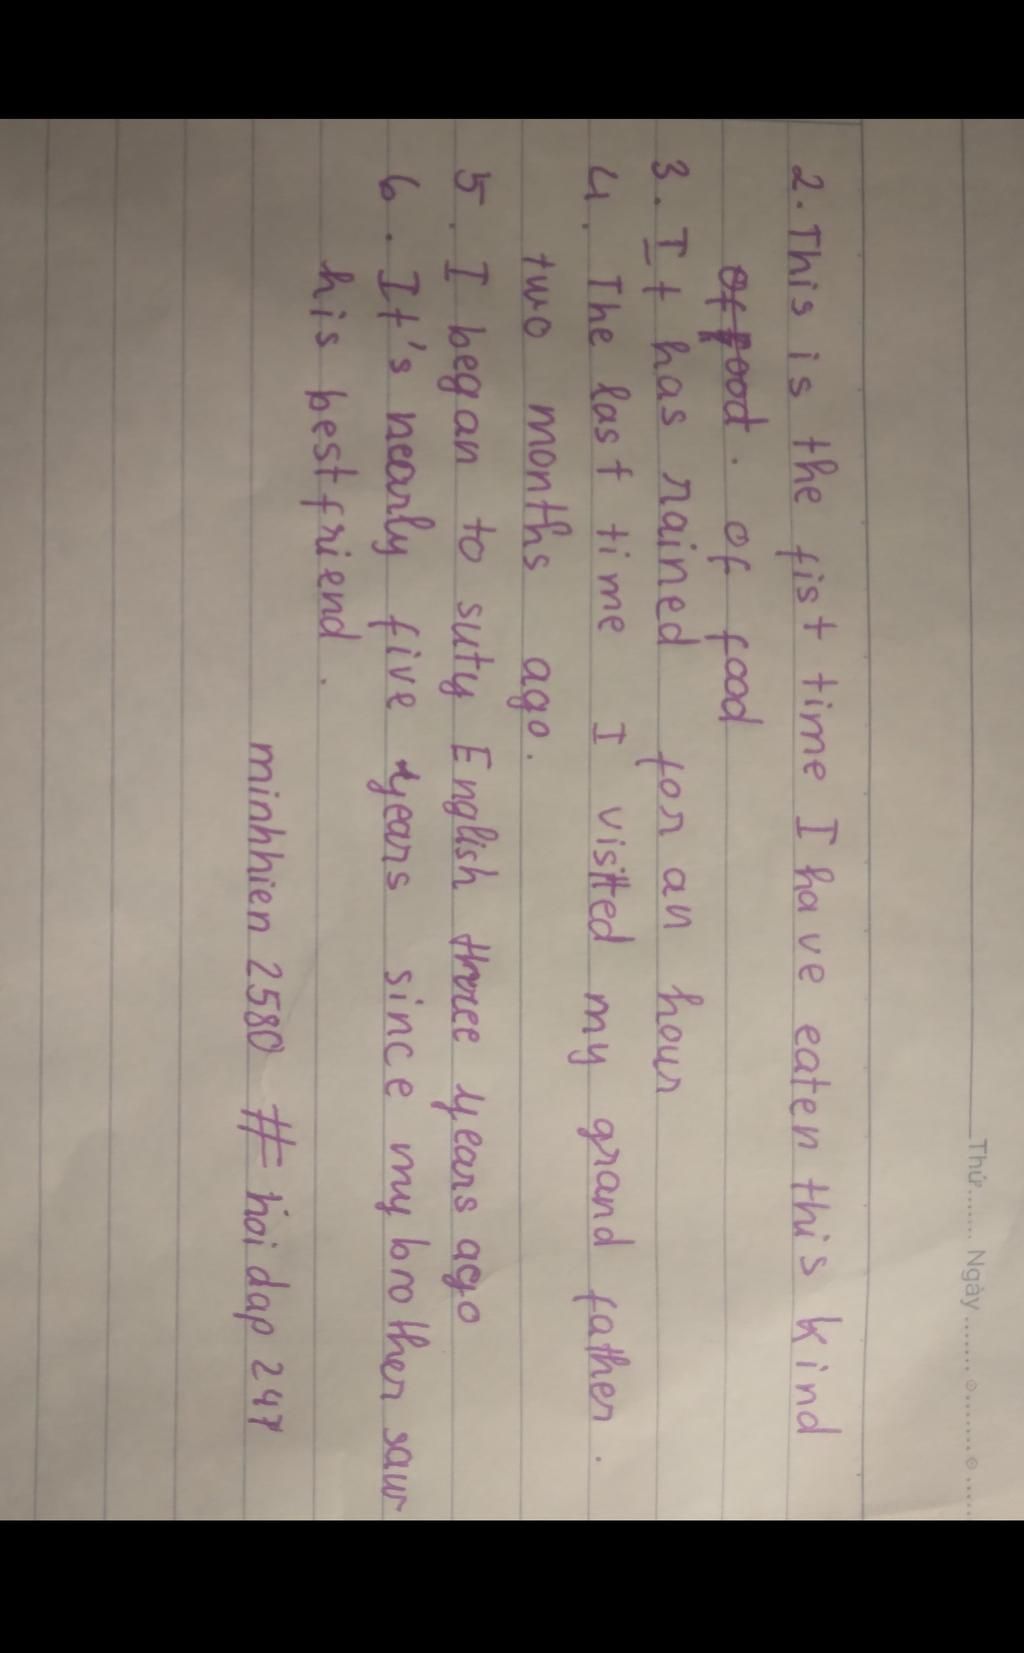 Thứ...... Ngày......
2. This is the fist time I have eaten this kind
of food. of food
3. It has rained for an hour
4. The last time I visited my grand father.
two months ago.
5. I began to suty English three years ago
6. It's nearly five years since my brother saw
his best friend.
minhhien 2580 # hoi dap 247